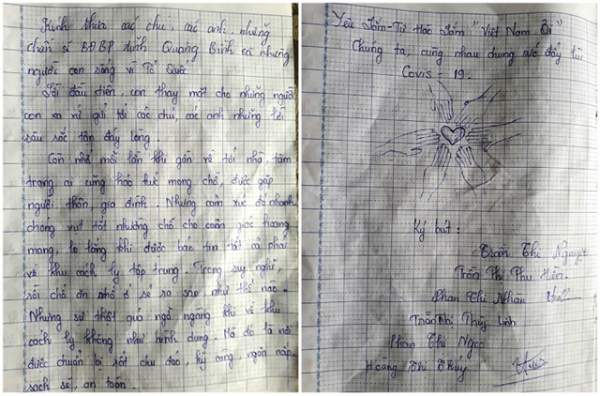 Kính thưa các chú, các anh, những
chiến sĩ BĐBP tỉnh Quảng Bình và những
người con sống vì Tổ Quốc
Lời đầu tiên, con thay mặt cho những người
con xa xứ gửi tới các chú, các anh những lời
sâu sắc tận đáy lòng
Con nhớ mỗi lần khi gần về tới nhà, tâm
trạng ai cũng háo hức mong chờ, được gặp
người thân, gia đình. Nhưng cảm xúc đó nhanh
chóng vụt tắt nhường chỗ cho cảm giác hoang
mang, lo lắng khi được báo tin tất cả phải
về khu cách ly tập trung. Trong suy nghĩ,
rồi chỗ ăn chỗ ở sẽ ra sao, như thế nào.
Nhưng sự thật quá ngỡ ngàng khi về khu
cách ly không như hình dung. Mà đó là nơi
được chuẩn bị rất chu đáo, kỹ càng, ngăn nắp
sạch sẽ, an toàn.
"Việt Nam Ơi"
Chúng ta, cùng nhau đẩy lùi
Covis - 19.
Ký bút:
Trần Thị Nguyệt
Trần Thị Thu Hiền.
Phan Thị Nhàn
Trần Thị Thùy Linh
Phan Thị Ngọc
Hoàng Thị Thủy